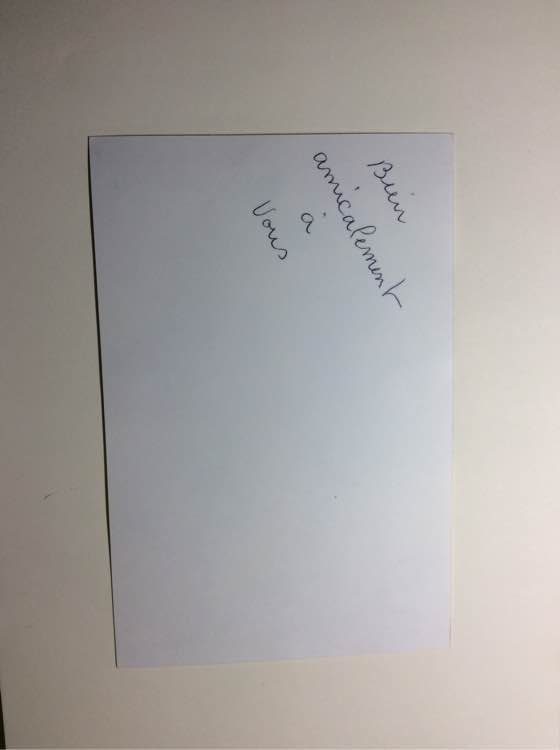 Bien
amicalement
à
Vous